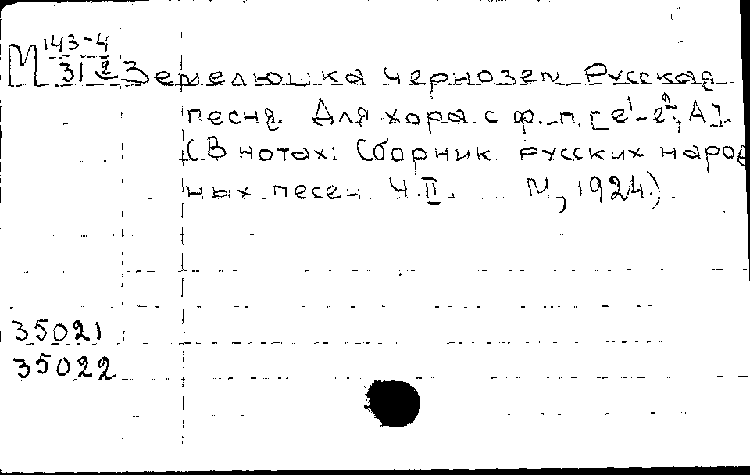 М 143-4
31 2 Земелюшка чернозем Русская
песня. Для хора с ф.-п. [e¹-e², A].
(В нотах: Сборник русских народ
ных песен Ч. II. М., 1924.)
35021
35022